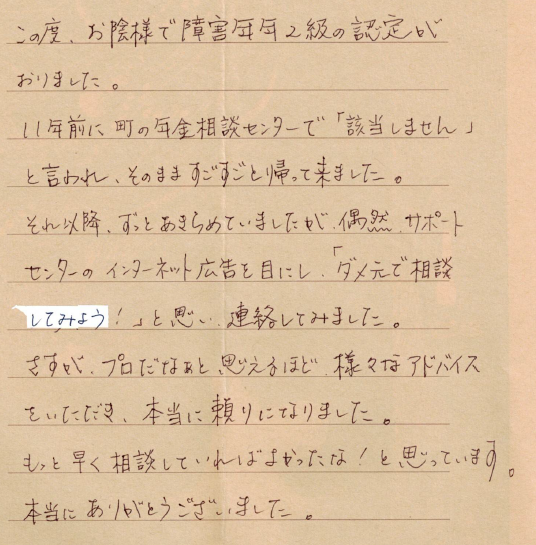 この度、お陰様で障害年年2級の認定が
おりました。
11年前に町の年金相談センターで「該当しません」
と言われ、そのまますごすごと帰って来ました。
それ以降、ずっとあきらめていましたが、偶然、サポート
センターのインターネット広告を目にし、「ダメ元で相談
してみよう！」と思い、連絡してみました。
さすが、プロだなぁと思えるほど、様々なアドバイス
をいただき、本当に頼りになりました。
もっと早く相談していればよかったな！と思っています。
本当にありがとうございました。